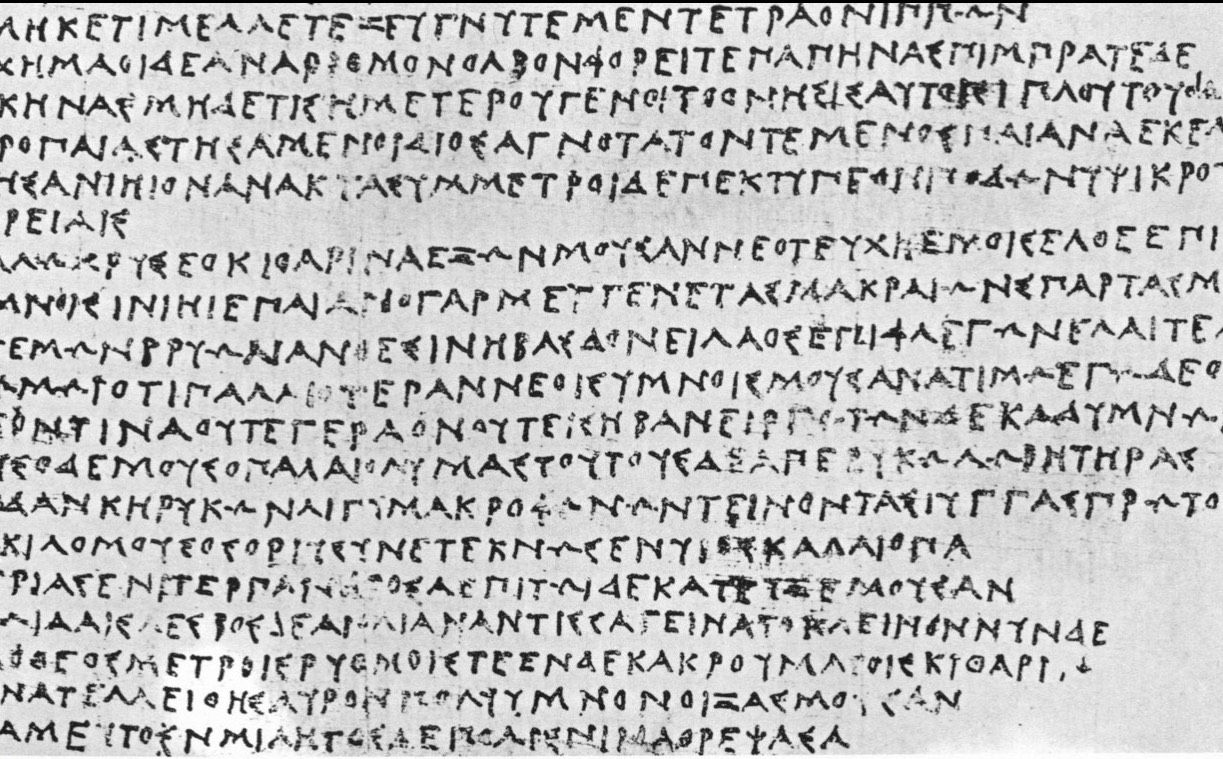 ΜΗΚΕΤΙΜΕΛΛΕΤΕΞΕΥΓΝΥΤΕΜΕΝΤΕΤΡΑΟΝΙΠΠΩΝ
ΧΗΜΑΟΙΔΕΑΝΑΡΙΘΜΟΝΟΛΒΟΝΦΟΡΕΙΤΕΠΑΠΗΝΑΣΠΙΜΠΡΑΤΕΔΕ
ΚΗΝΑΣΜΗΔΕΤΙΣΗΜΕΤΕΡΟΥΓΕΝΟΙΤΟΝΗΣΙΣΑΥΤΟΙΣΙΠΛΟΥΤΟΥΟΙΔ
ΡΟΠΑΙΑΣΤΗΣΑΜΕΝΟΙΔΙΟΣΑΓΝΟΤΑΤΟΝΤΕΜΕΝΟΣΠΑΙΑΝΑΕΚΕΛ
ΗΣΑΝΙΗΙΟΝΑΝΑΚΤΑΣΥΜΜΕΤΡΟΙΔΕΠΕΚΤΥΠΕΟΝΠΟΔΩΝΥΨΙΚΡΟΤ
ΡΕΙΑΙΣ
ΑΛΛΩΧΡΥΣΕΟΚΙΘΑΡΙΝΑΕΞΩΝΜΟΥΣΑΝΝΕΟΤΕΥΧΗΕΜΟΙΣΕΛΘΕΕΠΙ
ΜΝΟΙΣΙΝΙΗΙΕΠΑΙΑΝΟΓΑΡΜΕΥΓΕΝΕΤΑΣΜΑΚΡΑΙΩΝΣΠΑΡΤΑΣΜ
ΓΕΜΩΝΒΡΥΩΝΑΝΘΕΣΙΝΗΒΑΣΔΟΝΕΙΛΑΟΣΕΠΙΦΛΕΓΩΝΕΛΑΙΤΕΑ
ΜΩΜΩΙΟΤΙΠΑΛΑΙΟΤΕΡΑΝΝΕΟΙΣΥΜΝΟΙΣΜΟΥΣΑΝΑΤΙΜΩΕΓΩΔΕΟ
ΕΟΝΤΙΝΑΟΥΤΕΓΕΡΑΟΝΟΥΤΕΙΣΗΒΑΝΕΙΡΓΩΤΩΝΔΕΚΑΔΥΜΝΩ
ΥΣΔΕΜΟΥΣΟΠΑΛΑΙΟΛΥΜΑΣΤΟΥΤΟΥΣΔΕΑΠΕΡΥΚΩΛΩΒΗΤΗΡΑΣ
ΔΑΝΚΗΡΥΚΩΝΛΙΓΥΜΑΚΡΟΦΩΝΩΝΤΕΙΝΟΝΤΑΣΙΥΓΓΑΣΠΡΩΤΟ
ΚΙΛΟΜΟΥΣΟΣΟΡΙΥΣΥΝΕΤΕΚΝΩΣΕΝΥΙΟΣΚΑΛΛΙΟΠΑ
ΕΡΙΑΣΕΝΙΤΕΡΠΑΝ ΕΠΙΤΩΙΔΕΚΑΤΕΥΞΕΜΟΥΣΑΝ
ΩΙΔΑΙΣΛΕΣΒΟΣΔΕΑΙΟΛΙΑΝΑΝΤΙΣΣΑΓΕΙΝΑΤΟΚΛΕΙΝΟΝΝΥΝΔΕ
ΟΘΕΟΣΜΕΤΡΟΙΣΡΥΘΜΟΙΣΤΕΕΝΔΕΚΑΚΡΟΥΜΑΤΟΙΣΚΙΘΑΡΙ
ΝΑΤΕΛΛΕΙΘΗΣΑΥΡΟΝΠΟΛΥΥΜΝΟΝΟΙΞΑΣΜΟΥΣΑΝ
ΑΜΕΥΤΟΝΜΙΛΗΤΟΣΔΕΠΟΛΙΣΝΙΝΑΘΡΕΨΑΣΑ